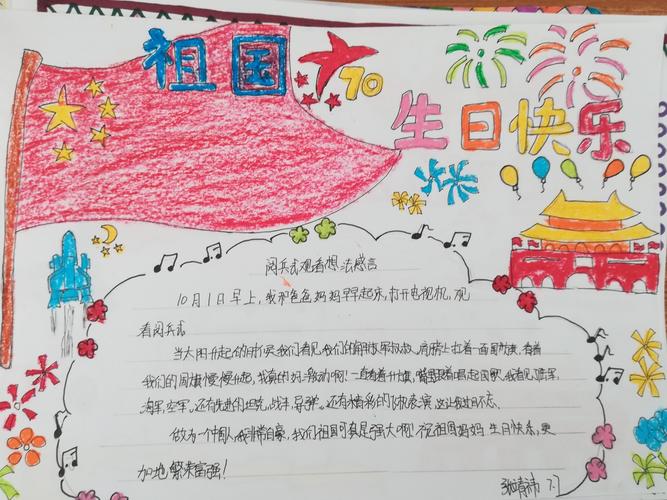 祖国
70
生日快乐
阅兵式观看想法感言
10月1日早上,我和爸爸妈妈早早起床,打开电视机,观
看阅兵式
当太阳升起的时候,我们看见,我们的解放军叔叔,肩膀上拉着一面国旗,看着
我们的国旗慢慢升起,我真的好激动啊!一边看着升旗,嘴里跟着唱起国歌,我看见陆军,
海军,空军。还有先进的坦克,战斗,导弹。还有精彩的飞机表演,这让我过目不忘。
做为一个中国人,我非常自豪,我们祖国可真是强大啊!祝祖国妈妈生日快乐,更
加地繁荣富强!
张靖祎 7.7